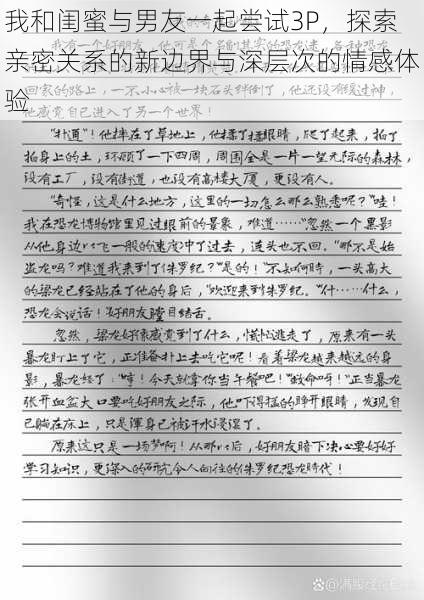 我和闺蜜与男友一起尝试3P，探索
亲密关系的新边界与深层次的情感体
验
回家的路上，一不小心被一块石头绊倒了，他还没有缓过神，
他感觉自己进入了另一个世界！
“扑通”！他摔在了草地上，他揉了揉眼睛，爬了起来，拍了
拍身上的土，环顾了一下四周，周围全是一片一望无际的森林，
没有工厂，没有街道，也没有高楼大厦，更没有人。
“奇怪，这是什么地方，这里的一切怎么那么熟悉呢？”哇！
我在恐龙博物馆里见过眼前的景象，难道……“忽然一个黑影
从他身边以飞一般的速度冲了过去，连头也不回。“那不是始
盗龙吗？难道我来到了侏罗纪？”是的！“不知何时，一头高大
的梁龙已经站在了他的身后，“欢迎来到侏罗纪。“什……什么，
恐龙会说话！好朋友瞠目结舌。
忽然，梁龙好像感觉到了什么，慌忙逃走了，原来有一头
暴龙盯上了它，正准备扑上去吃它呢！看着梁龙越来越远的身
影，暴龙怒了：“哼！今天就拿你当午餐吧！”“救命呀！”正当暴龙
张开血盆大口要吃好朋友之际，他“下得猛的睁开眼睛，发现自
己躺在床上，只是浑身已被汗水浸湿了。
原来这只是一场梦啊！从那以后，好朋友暗下决心要好好
学习知识，更深入的研究令人向往的侏罗纪恐龙时代！